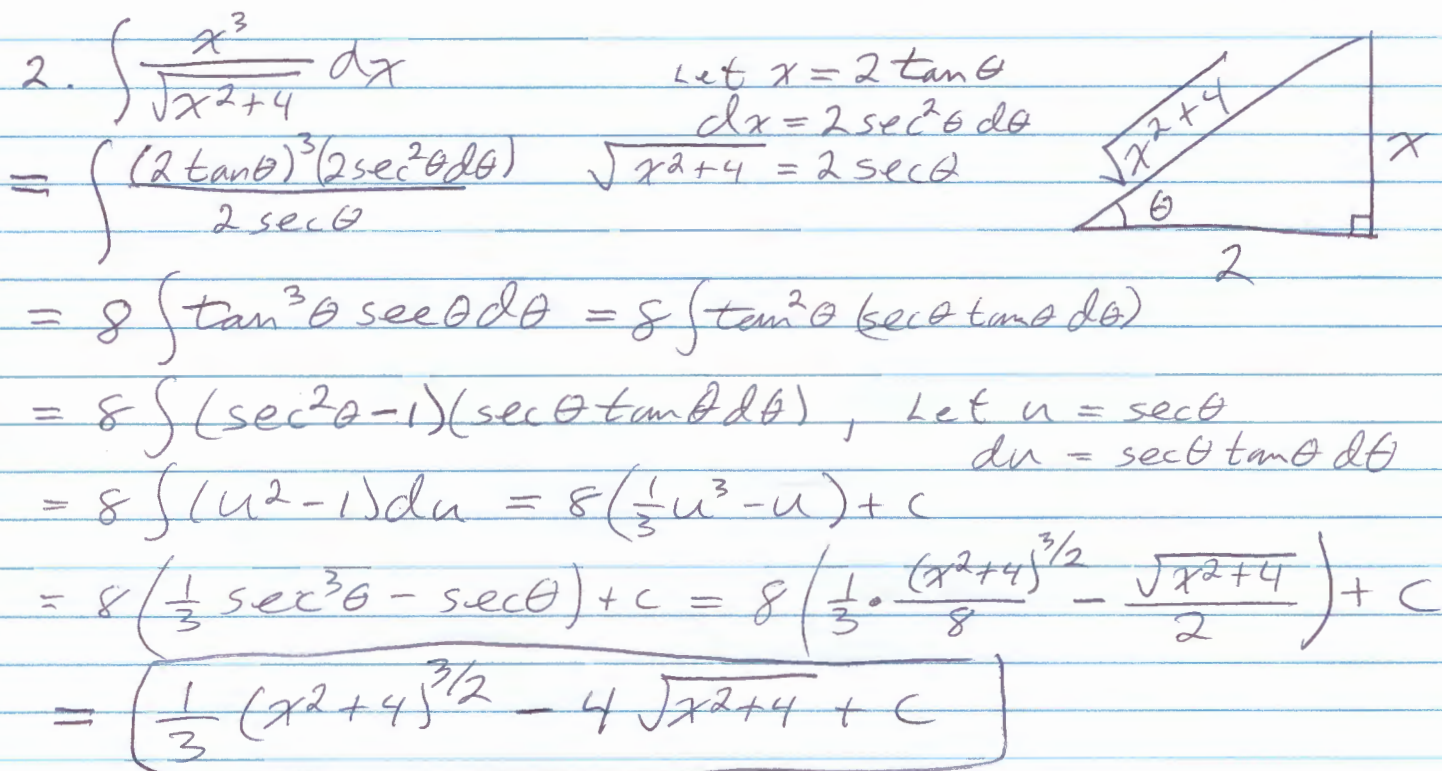 2. ∫ x³/√(x²+4) dx    Let x = 2 tanθ
dx = 2 sec²θ dθ
= ∫ (2 tanθ)³(2 sec²θ dθ)/(2 secθ)    √(x²+4) = 2 secθ
√(x²+4)
x
θ
2
= 8 ∫ tan³θ secθ dθ = 8 ∫ tan²θ (secθ tanθ dθ)
= 8 ∫ (sec²θ - 1)(secθ tanθ dθ), Let u = secθ
du = secθ tanθ dθ
= 8 ∫ (u² - 1) du = 8(⅓u³ - u) + C
= 8(⅓ sec³θ - secθ) + C = 8(⅓ · (x²+4)^(3/2)/8 - √(x²+4)/2) + C
= ⅓ (x²+4)^(3/2) - 4√(x²+4) + C